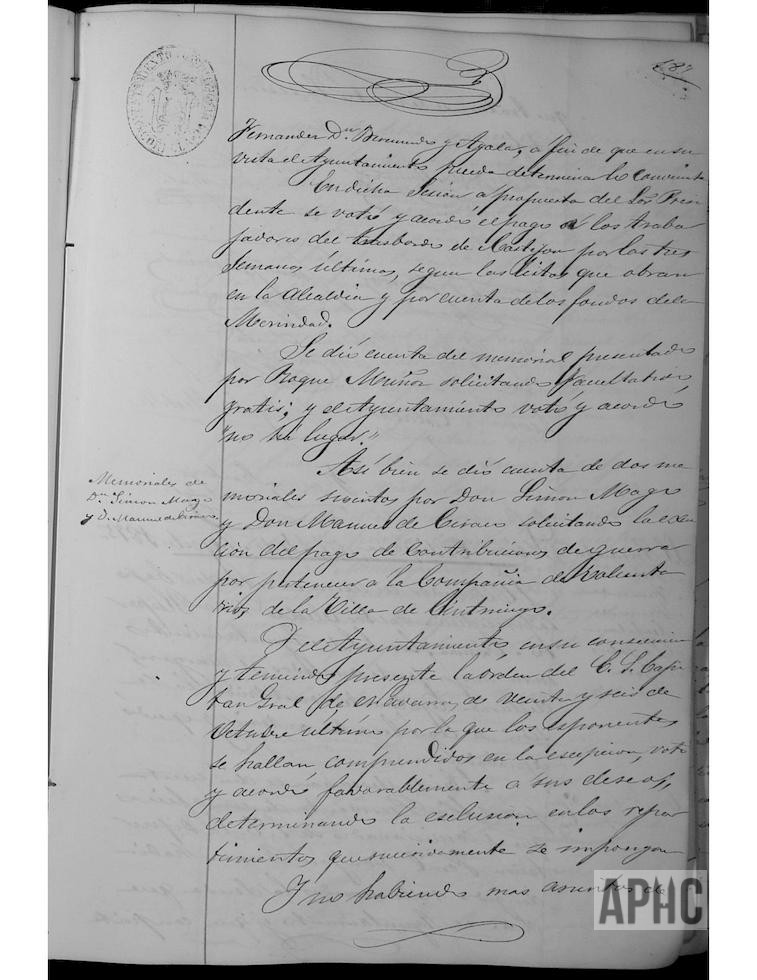 187
Fernandez Dn. Bermundo y Ayala, a fin de que en su
vista el Ayuntamiento pueda determinar lo conveniente
En dicha sesión a propuesta del Sor. Presi
dente se votó y acordó el pago a los traba
jadores del trasbordo de Castejon por las tres
semanas últimas, segun las listas que obran
en la Alcaldia y por cuenta de los fondos de la
Merindad.
Se dió cuenta del memorial presentado
por Roque Muñoz solicitando facultativos
gratis; y el Ayuntamiento votó y acordó
"no há lugar."
Memoriales de
Dn. Simon Mago
y D. Manuel de Cirios
Asi bien se dió cuenta de dos me
moriales suscritos por Don Simon Mago
y Don Manuel de solicitando la exen
ción del pago de Contribuciones de guerra
por pertenecer a la Compañia de Volunta
rios de la Villa de Cintruenigo.
Y el Ayuntamiento, en su consecuencia
y teniendo presente la órden del E. S. Capi
tan Gral de Navarra, de veinte y seis de
Octubre último por la que los esponentes
se hallan comprendidos en la escepcion, votó
y acordó favorablemente a sus deseos,
determinando la esclusion en los repar
timientos que sucesivamente se impongan
Y no habiendo mas asuntos de
APHC